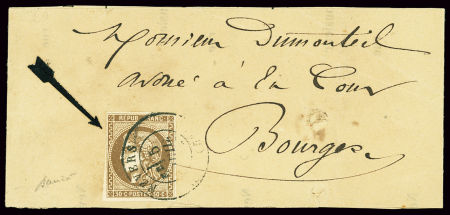 Monsieur Dumonteil
avoué à la Cour
Bourges
REPUB FRANC
30 C POSTES 30 C